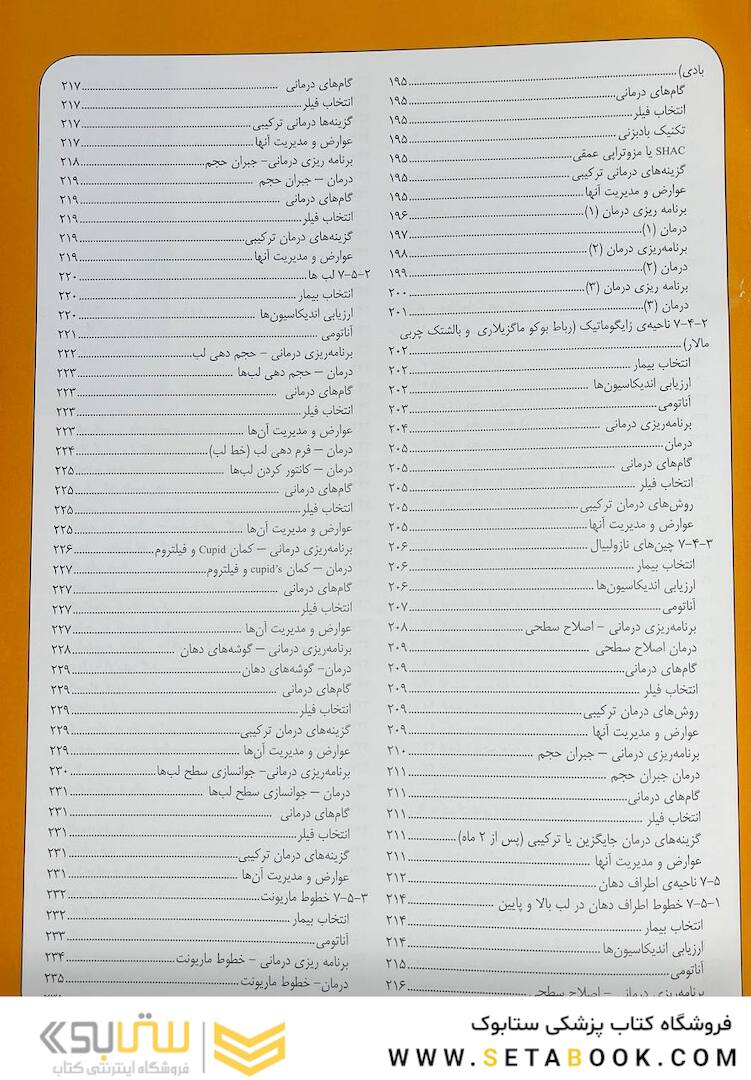 بادی)........۱۹۵
گام‌های درمانی........۱۹۵
انتخاب فیلر........۱۹۵
تکنیک بادبزنی........۱۹۵
SHAC یا مزوتراپی عمقی........۱۹۵
گزینه‌های درمانی ترکیبی........۱۹۵
عوارض و مدیریت آنها........۱۹۵
برنامه ریزی درمان (۱)........۱۹۶
درمان (۱)........۱۹۷
برنامه‌ریزی درمان (۲)........۱۹۸
درمان (۲)........۱۹۹
برنامه ریزی درمان (۳)........۲۰۰
درمان (۳)........۲۰۱
۷-۴-۲ ناحیه‌ی زایگوماتیک (رباط بوکو ماگزیلاری و بالشتک چربی
مالار)........۲۰۲
انتخاب بیمار........۲۰۲
ارزیابی اندیکاسیون‌ها........۲۰۲
آناتومی........۲۰۳
برنامه‌ریزی درمانی........۲۰۴
درمان........۲۰۵
گام‌های درمانی........۲۰۵
انتخاب فیلر........۲۰۵
روش‌های درمان ترکیبی........۲۰۵
عوارض و مدیریت آنها........۲۰۵
۷-۴-۳ چین‌های نازولبیال........۲۰۶
انتخاب بیمار........۲۰۶
ارزیابی اندیکاسیون‌ها........۲۰۶
آناتومی........۲۰۷
برنامه‌ریزی درمانی - اصلاح سطحی........۲۰۸
درمان اصلاح سطحی........۲۰۹
گام‌های درمانی........۲۰۹
انتخاب فیلر........۲۰۹
روش‌های درمان ترکیبی........۲۰۹
عوارض و مدیریت آنها........۲۰۹
برنامه‌ریزی درمانی – جبران حجم........۲۱۰
درمان جبران حجم........۲۱۱
گام‌های درمانی........۲۱۱
انتخاب فیلر........۲۱۱
گزینه‌های درمان جایگزین یا ترکیبی (پس از ۲ ماه)........۲۱۱
عوارض و مدیریت آنها........۲۱۱
۷-۵ ناحیه‌ی اطراف دهان........۲۱۲
۷-۵-۱ خطوط اطراف دهان در لب بالا و پایین........۲۱۴
انتخاب بیمار........۲۱۴
ارزیابی اندیکاسیون‌ها........۲۱۴
آناتومی........۲۱۵
برنامه‌ریزی درمانی – اصلاح سطحی........۲۱۶
گام‌های درمانی........۲۱۷
انتخاب فیلر........۲۱۷
گزینه‌ها درمانی ترکیبی........۲۱۷
عوارض و مدیریت آنها........۲۱۷
برنامه ریزی درمانی- جبران حجم........۲۱۸
درمان – جبران حجم........۲۱۹
گام‌های درمانی........۲۱۹
انتخاب فیلر........۲۱۹
گزینه‌های درمان ترکیبی........۲۱۹
عوارض و مدیریت آنها........۲۱۹
۷-۵-۲ لب ها........۲۲۰
انتخاب بیمار........۲۲۰
ارزیابی اندیکاسیون‌ها........۲۲۰
آناتومی........۲۲۱
برنامه‌ریزی درمانی - حجم دهی لب........۲۲۲
درمان – حجم دهی لب‌ها........۲۲۳
گام‌های درمانی........۲۲۳
انتخاب فیلر........۲۲۳
عوارض و مدیریت آن‌ها........۲۲۳
درمان – فرم دهی لب (خط لب)........۲۲۴
درمان – کانتور کردن لب‌ها........۲۲۵
گام‌های درمانی........۲۲۵
انتخاب فیلر........۲۲۵
عوارض و مدیریت آن‌ها........۲۲۵
برنامه‌ریزی درمانی – کمان Cupid و فیلتروم........۲۲۶
درمان – کمان cupid's و فیلتروم........۲۲۷
گام‌های درمانی........۲۲۷
انتخاب فیلر........۲۲۷
عوارض و مدیریت آن‌ها........۲۲۷
برنامه‌ریزی درمانی – گوشه‌های دهان........۲۲۸
درمان- گوشه‌های دهان........۲۲۹
گام‌های درمانی........۲۲۹
انتخاب فیلر........۲۲۹
گزینه‌های درمان ترکیبی........۲۲۹
عوارض و مدیریت آن‌ها........۲۲۹
برنامه‌ریزی درمانی- جوانسازی سطح لب‌ها........۲۳۰
درمان – جوانسازی سطح لب‌ها........۲۳۱
گام‌های درمانی........۲۳۱
انتخاب فیلر........۲۳۱
گزینه‌های درمان ترکیبی........۲۳۱
عوارض و مدیریت آن‌ها........۲۳۱
۷-۵-۳ خطوط ماریونت........۲۳۲
انتخاب بیمار........۲۳۲
آناتومی........۲۳۳
برنامه ریزی درمانی - خطوط ماریونت........۲۳۴
درمان- خطوط ماریونت........۲۳۵
فروشگاه کتاب پزشکی ستابوک
WWW.SETABOOK.COM
ستابوک
فروشگاه اینترنتی کتاب